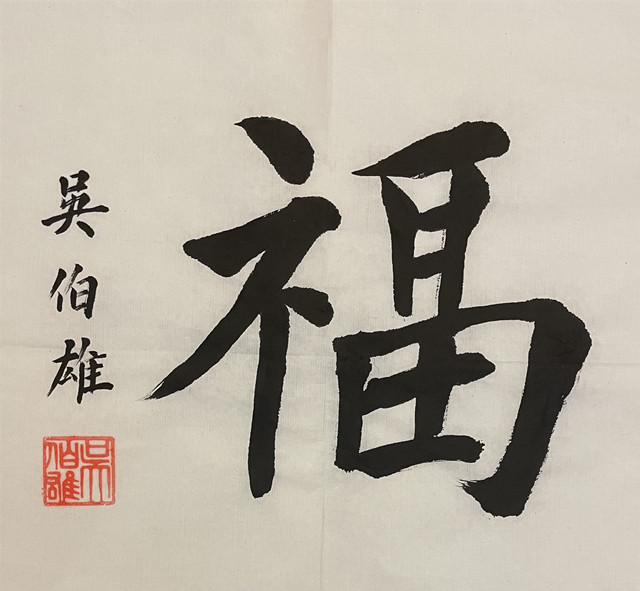 福
吳伯雄
吳
伯雄